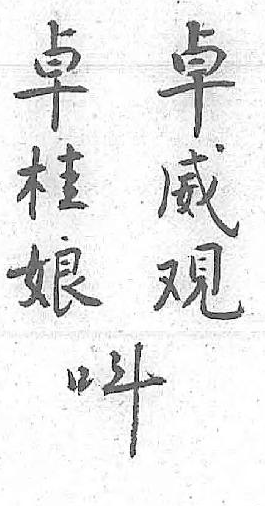 卓威观
卓桂娘
叫